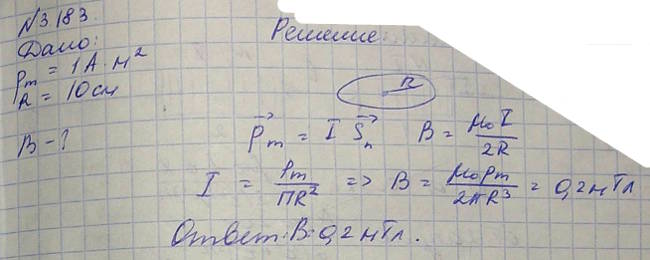 №3.183.
Дано:
Pm = 1 А·м²
R = 10 см
B - ?
Решение:
R
P⃗m = I S⃗n B = μ₀I / 2R
I = Pm / ПR² => B = μ₀Pm / 2πR³ = 0,2 мТл
Ответ: B: 0,2 мТл.